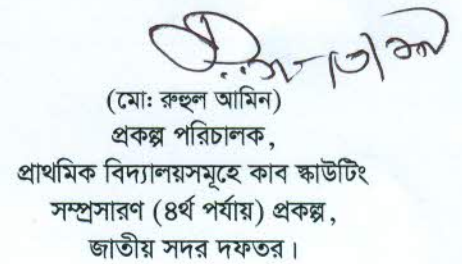 (মোঃ রুহুল আমিন)
প্রকল্প পরিচালক,
প্রাথমিক বিদ্যালয়সমূহে কাব স্কাউটিং
সম্প্রসারণ (৪র্থ পর্যায়) প্রকল্প,
জাতীয় সদর দফতর।